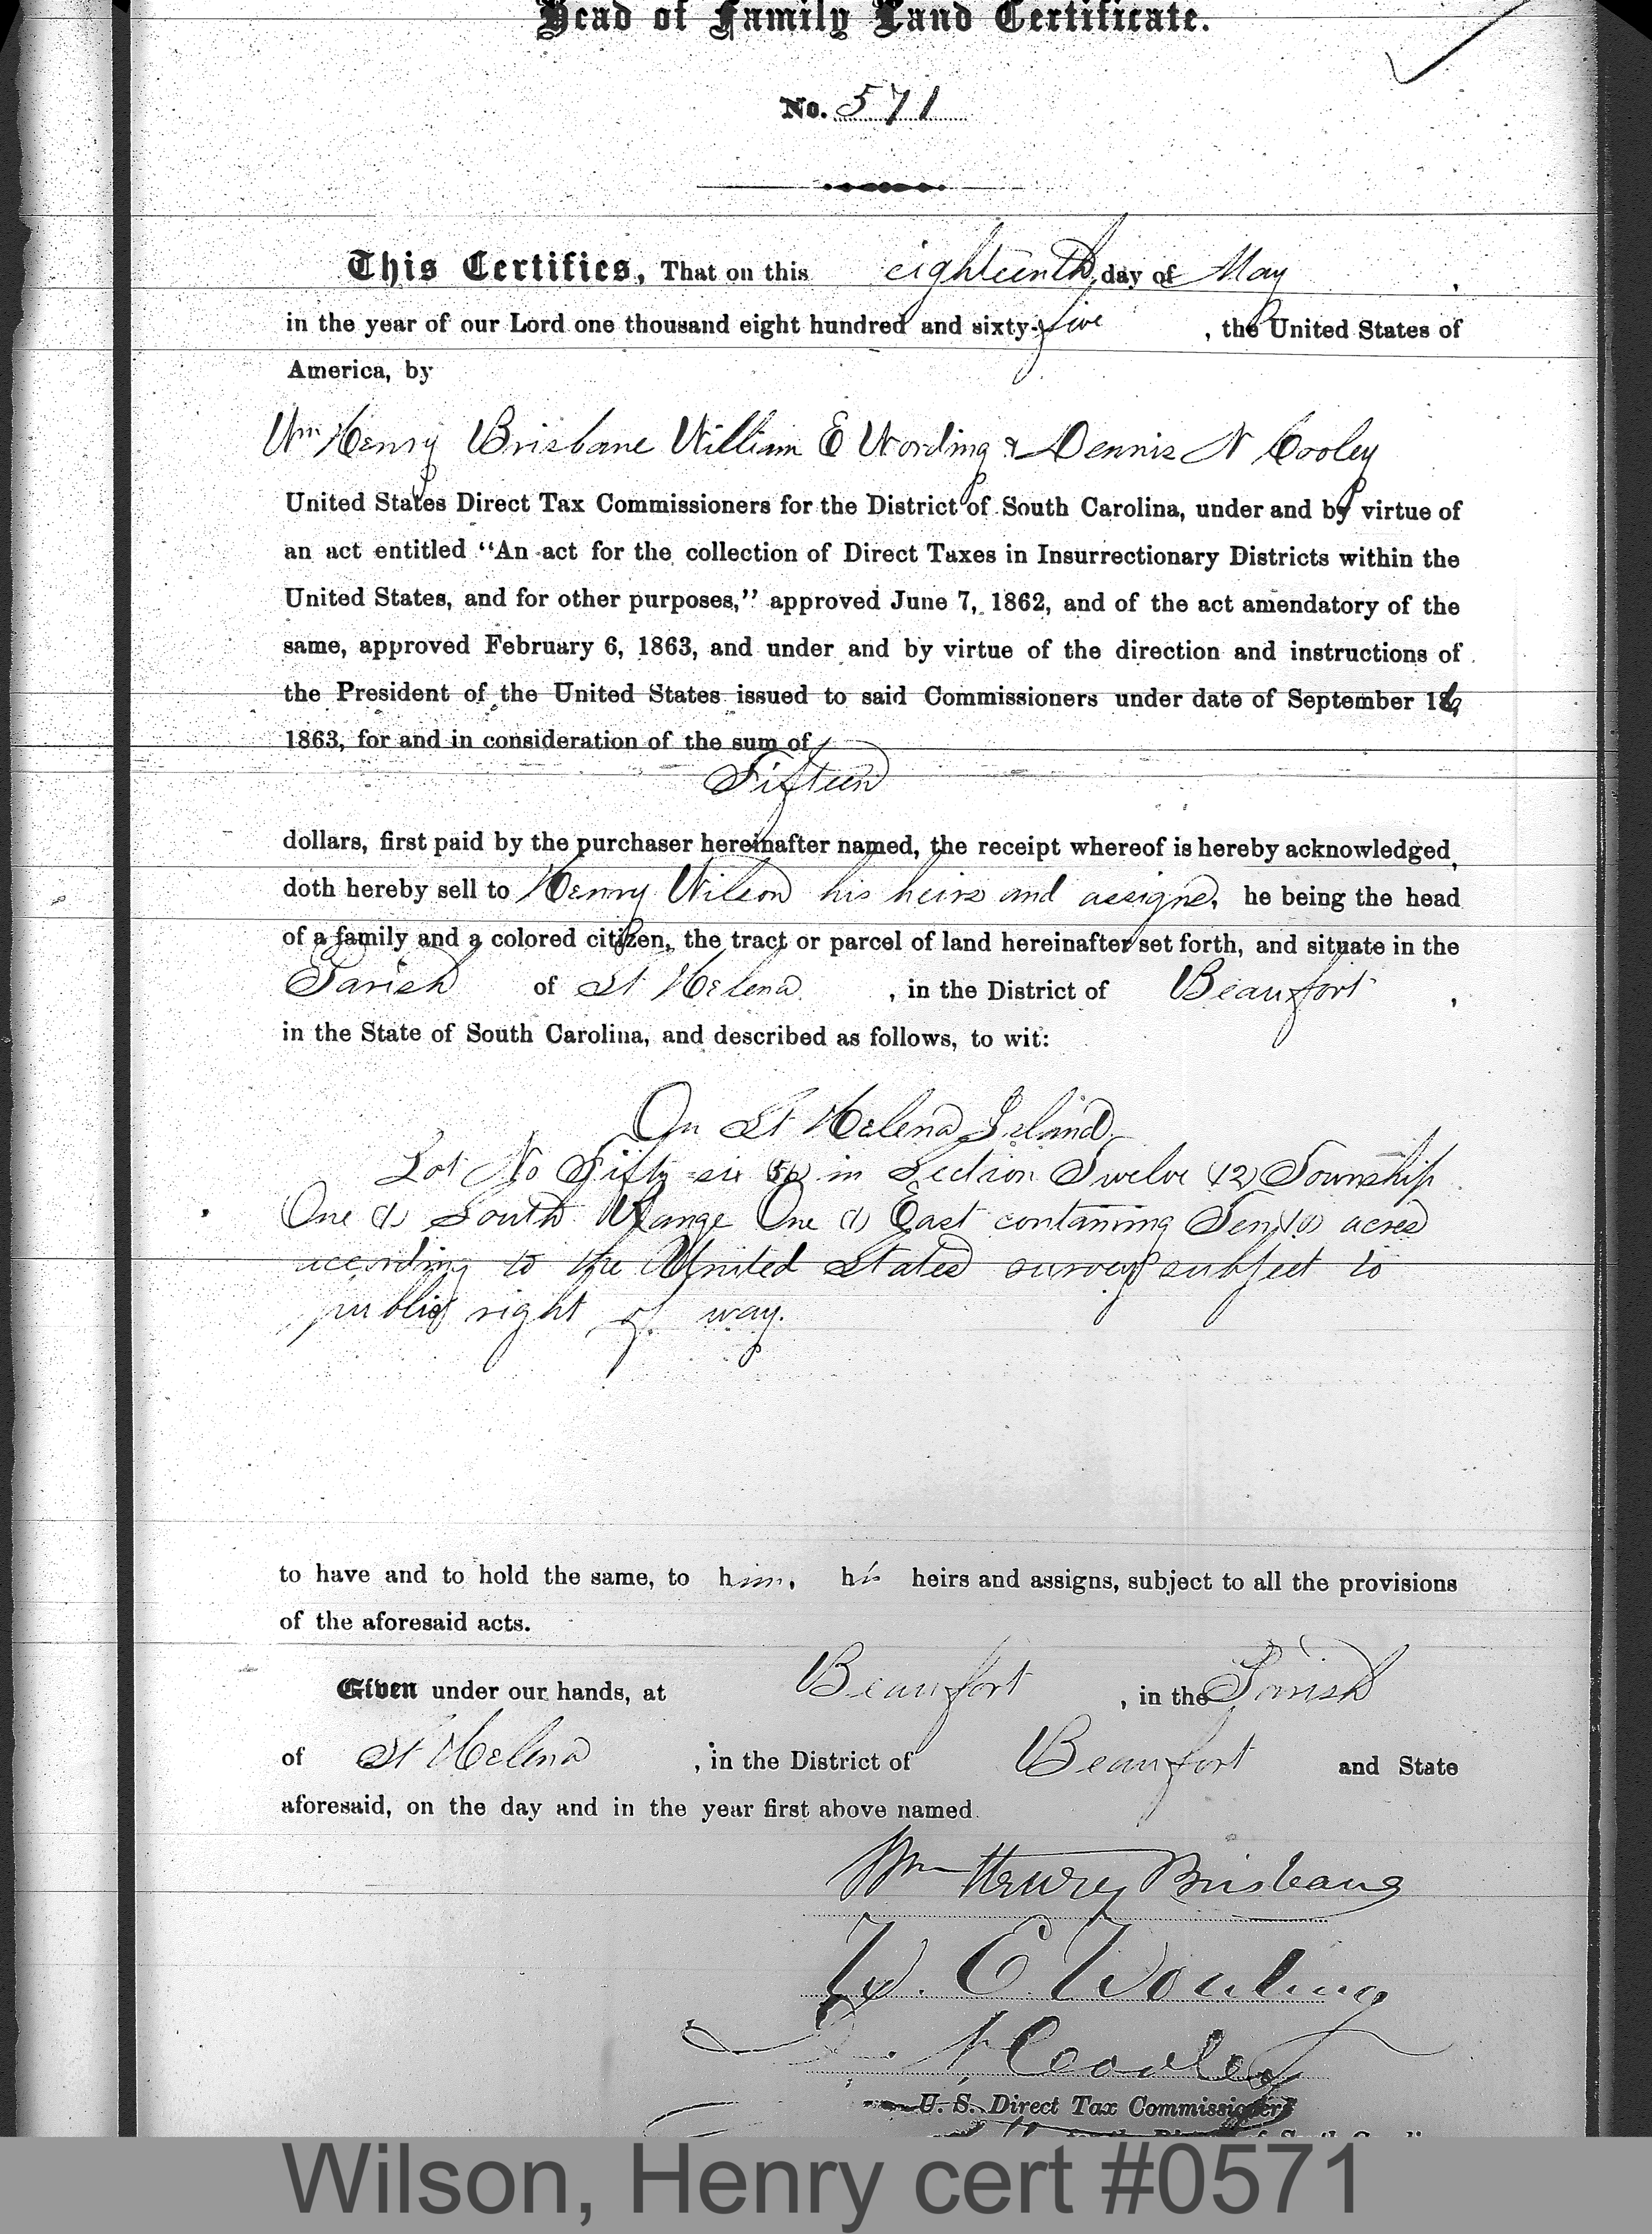 Head of Family Land Certificate.
No. 571
This Certifies, That on this eighteenth day of May,
in the year of our Lord one thousand eight hundred and sixty-five, the United States of
America, by
Wm Henry Brisbane William E Wording & Dennis N Cooley
United States Direct Tax Commissioners for the District of South Carolina, under and by virtue of
an act entitled "An act for the collection of Direct Taxes in Insurrectionary Districts within the
United States, and for other purposes," approved June 7, 1862, and of the act amendatory of the
same, approved February 6, 1863, and under and by virtue of the direction and instructions of
the President of the United States issued to said Commissioners under date of September 16,
1863, for and in consideration of the sum of
Fifteen
dollars, first paid by the purchaser hereinafter named, the receipt whereof is hereby acknowledged,
doth hereby sell to Henry Wilson his heirs and assigns, he being the head
of a family and a colored citizen, the tract or parcel of land hereinafter set forth, and situate in the
Parish of St Helena, in the District of Beaufort,
in the State of South Carolina, and described as follows, to wit:
On St Helena Island
Lot No Fifty-six (56) in Section Twelve (12) Township
One (1) South Range One (1) East containing Ten (10) acres
according to the United States survey subject to
public right of way.
to have and to hold the same, to him, his heirs and assigns, subject to all the provisions
of the aforesaid acts.
Given under our hands, at Beaufort, in the Parish
of St Helena, in the District of Beaufort and State
aforesaid, on the day and in the year first above named.
Wm Henry Brisbane
W. E. Wording
D. N. Cooley
U. S. Direct Tax Commissioners
for the District of South Carolina
Wilson, Henry cert #0571